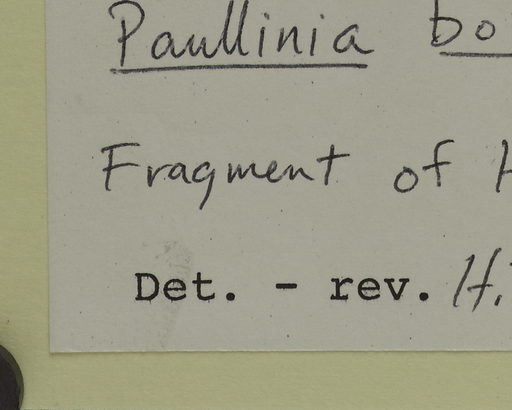 Paullinia bo
Fragment of H
Det. - rev. H.